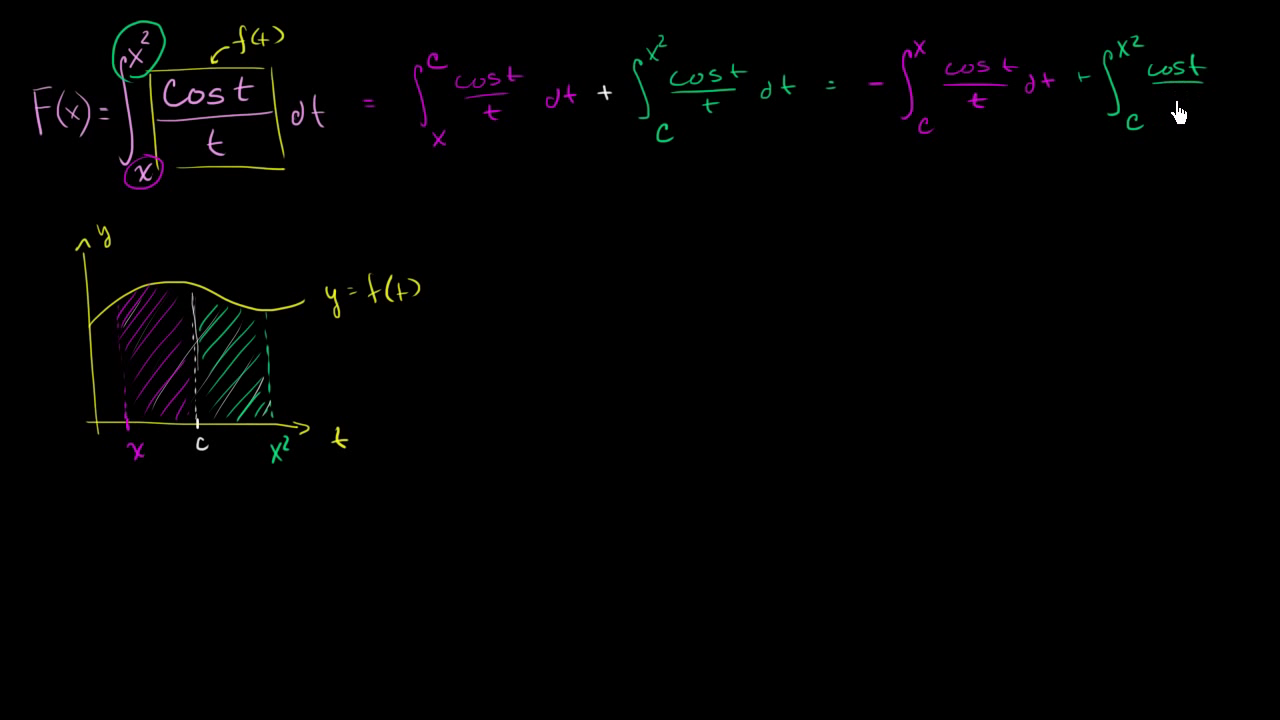 f(t)
F(x) = ∫_x^{x²} cos t / t dt = ∫_x^c cos t / t dt + ∫_c^{x²} cos t / t dt = - ∫_c^x cos t / t dt + ∫_c^{x²} cos t
y
y = f(t)
x c x² t